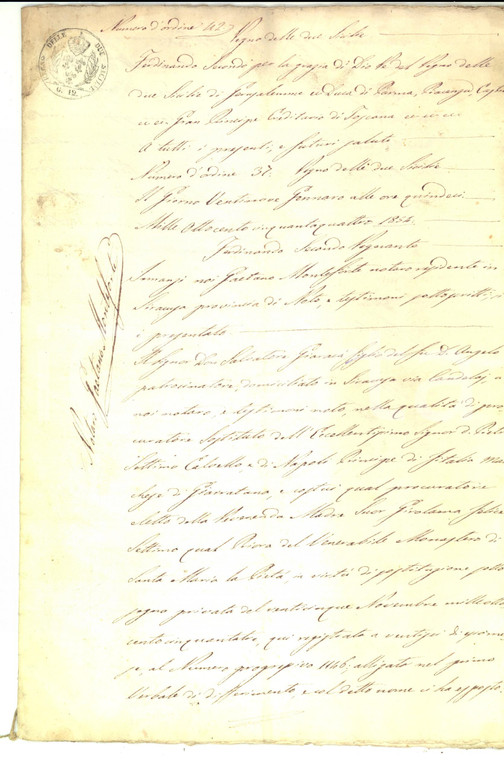 Numero d'ordine 42
Regno delle due Sicilie
Ferdinando Secondo per la grazia di Dio Re del Regno delle
due Sicilie di Gerusalemme ec Duca di Parma, Piacenza, Castro
ec ec Gran Principe Ereditario di Toscana ec ec ec
A tutti i presenti, e futuri salute
Numero d'ordine 37. Regno delle due Sicilie
Il Giorno Ventinove Gennaro alle ore quindeci
Mille ottocento cinquantaquattro 1854.
Ferdinando Secondo Regnante
Innanzi noi Gaetano Monteforte notaro residente in
provincia di Noto, e testimoni sottoscritti,
è presentato
Il Signor Don Salvatore figlio del fu D. Angelo
patrocinatore, domiciliato in via
noi notaro, e testimoni noto, nella qualità di pro
curatore sostituto dell'Eccellentissimo Signor D.
Settimo Calvello e di Napoli Principe di Fitalia mar
chese di Giarratana, e costui qual procuratore
eletto della Reverenda Madre Suor Girolama
Settimo qual Priora del Venerabile Monastero di
Santa Maria la Pietà, in virtù di sostituzione sotto
segno privato del venticinque Novembre mille otto
cento cinquantatre, qui registrato a
al Numero progressivo 1146, alligato nel primo
Verbale di differimento, e col detto nome ci ha esposto
Notaro Gaetano Monteforte
REGNO DELLE DUE SICILIE
G. 12.